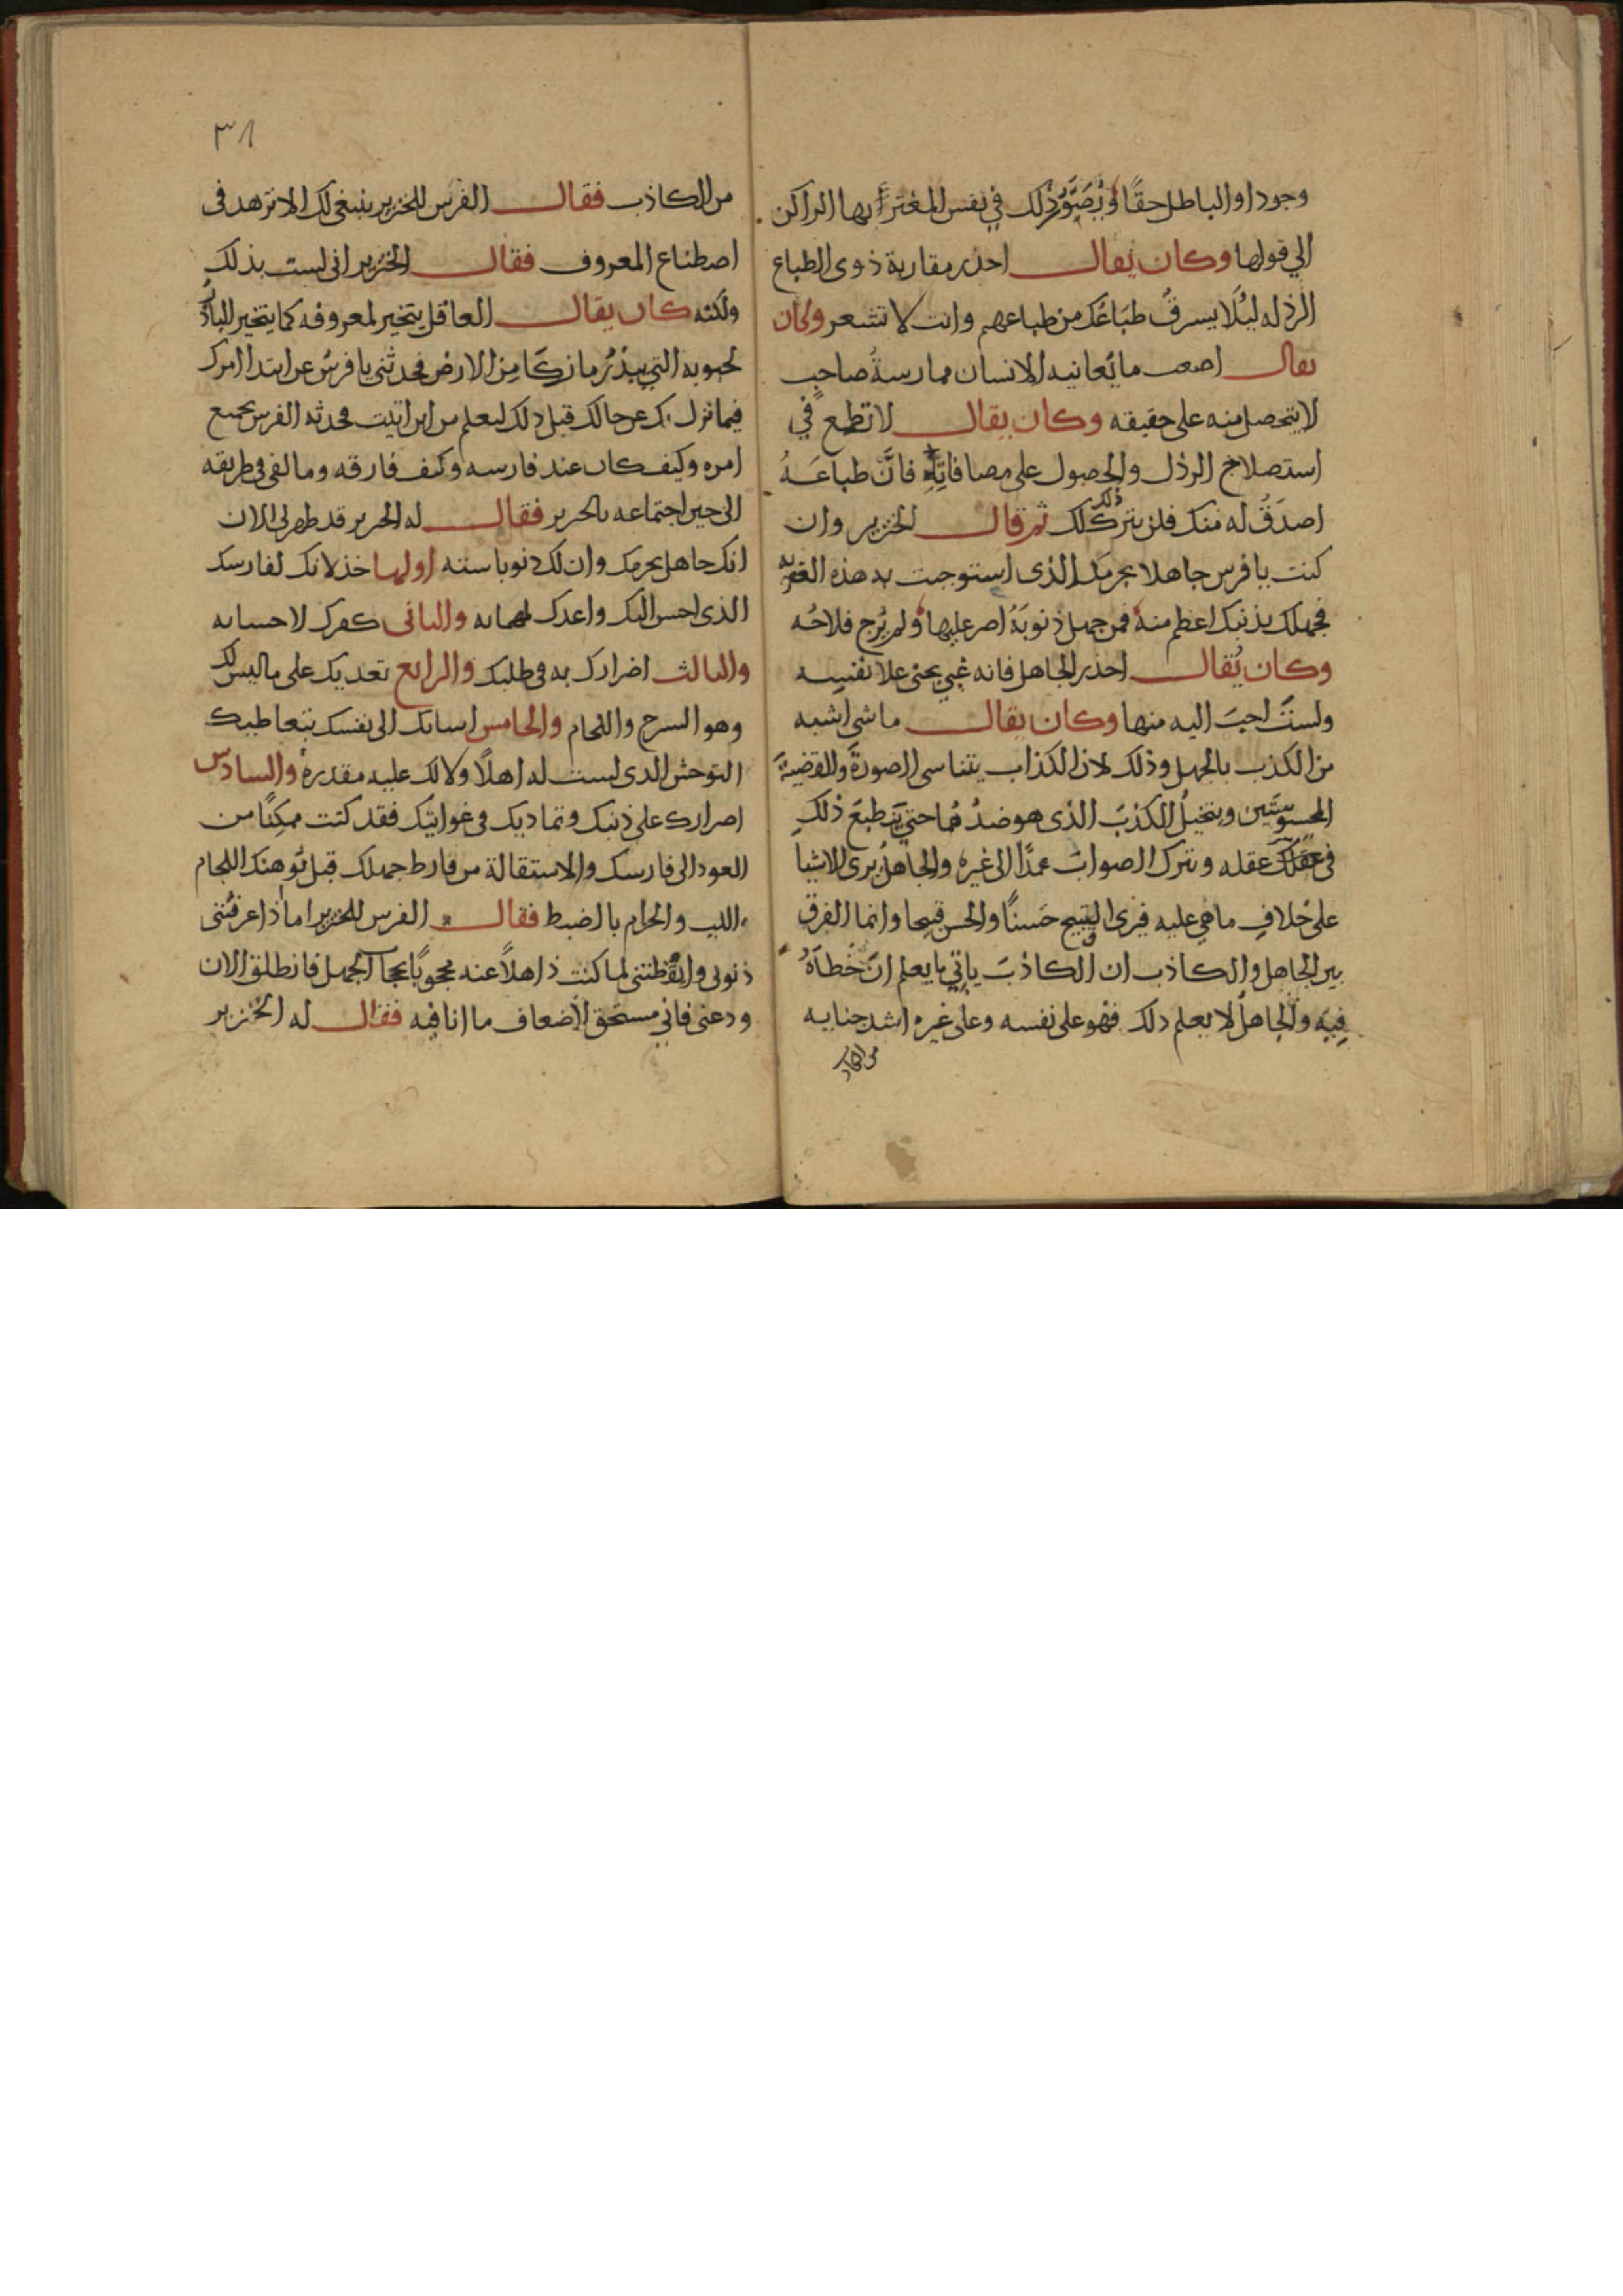 وجودا او الباطل حقًا ويُصَوِّر ذلك في نفس المغتر بها الراكن
الي قولها وكان يُقال احذر مقاربة ذوي الطباع
الرذله ليلًا يسرقُ طبَاعُك من طباعهم وانت لا تشعر وكان
يقال اصعب ما يُعانيه الانسان ممارسةُ صاحبٍ
لا يتحصل منه على حقيقه وكان يقال لا تطمع في
استصلاح الرذل والحصول على مصافاتِهِ فانَّ طباعَهُ
اصدَقُ له منك فلن يترك ذلك لك ثم قال الخنزير وان
كنت يا فرس جاهلا بجرمك الذي استوجبت به هذه العقوبه
فجهلك بذنبك اعظم منهُ فمن جهل ذنوبَهُ اصر عليها ولم يُرج فلاحُه
وكان يُقال احذر الجاهل فانه غبي يجنى علا نفسِه
ولستَ احبَ اليه منها وكان يقال ما شى اشبه
من الكذب بالجهل وذلك لان الكذاب يتناسى الصورةَ والقضيةَ
المحسوسَتَين ويتخيلُ الكذبَ الذى هو ضدُهُما حتي يَنطبعَ ذلك
فى عقله ويترك الصوابَ عمدًا الى غيره والجاهلُ يرى الاشيا
على خلافِ ما هي عليه فيرى القبيح حَسنًا والحسن قبيحا وانما الفرق
بين الجاهل والكاذب ان الكاذبَ ياتي ما يعلم انَ خَطآهُ
فِيه والجاهلُ لا يعلم ذلك فهو على نفسه وعلى غيره اشد جنايه
من الكاذب
٣٨
من الكاذب فقال الفرس للخنزير ينبغى لك الا تزهد فى
اصطناع المعروف فقال الخنزير انى لست بذلك
ولكنه كان يقال العاقل يتخير لمعروفه كما يتخير الباذر
لحبوبه التي يبذرُ ما زكَا مِن الارض فحدثني يا فرسُ عن ابتدا امرك
فيما نزل بك وعن حالك قبل ذلك ليعلم من اين اتيت فحدثه الفرس بجميع
امره وكيف كان عند فارسه وكيف فارقه وما لقى فى طريقه
الى حين اجتماعه بالخنزير فقال له الخنزير قد ظهر لى الان
انك جاهل بجرمك وان لك ذنوبا سته اولها خذلانك لفارسك
الذى احسن اليك واعدك لمهماته والثانى كفرك لاحسانه
والثالث اضرارك به فى طلبك والرابع تعديك على ما ليس لك
وهو السرج واللجام والخامس اساتك الى نفسك بتعاطيك
التوحش الذى لست له اهلًا ولا لك عليه مقدرة والسادس
اصرارك على ذنبك وتماديك فى غوايتك فقد كنت ممكِنًا من
العود الى فارسك والاستقالة من فارط جهلك قبل تُوهنك اللجام
واللبب والحزام بالضبط فقال الفرس للخنزير اما اذ اعرفتنى
ذنوبى وايقظتنى لما كنت ذاهلًا عنه محجوبًا بحجاب الجهل فانطلق الان
ودعنى فاني مستحق لاضعاف ما انا فيه فقال له الخنزير